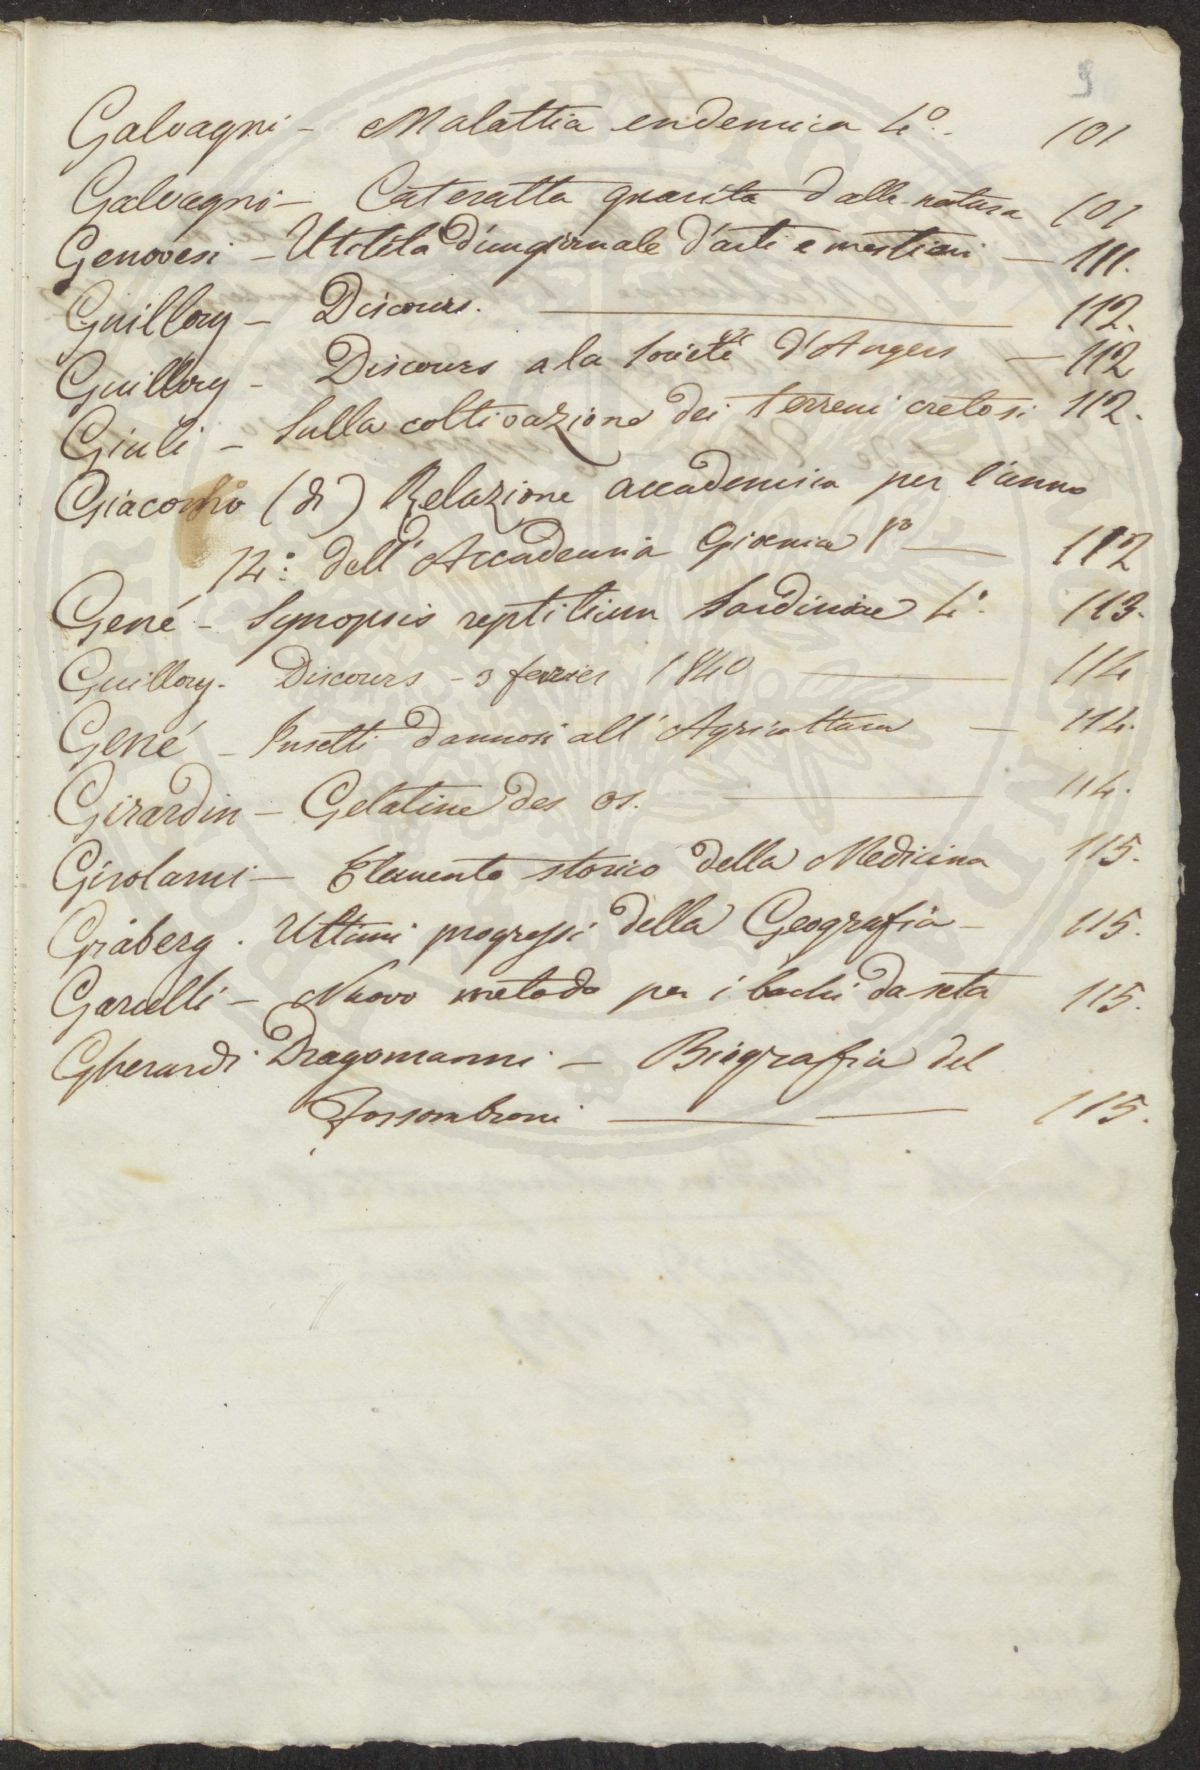 9
Galvagni - Malattia endemica 4.° - 101
Galvagni - Cateratta guarita dalla natura 101
Genovesi - Utilità d'un giornale d'arti e mestieri - 111.
Guillory - Discours. 112.
Guillory - Discours a la Societé d'Angers - 112
Giuli - Sulla coltivazione dei terreni cretosi 112.
Giacomo (di) Relazione accademica per l'anno
14.° dell'Accademia Gioenia 112
Gené - Synopsis reptilium Sardiniae 4.° 113.
Guillory - Discours - 3 fevrier 1840 114
Gené - Insetti dannosi all'Agricoltura - 114.
Girardin - Gelatine des os. 114.
Girolami - Elemento storico della Medicina 115.
Gråberg. Ultimi progressi della Geografia - 115.
Garulli - Nuovo metodo per i bachi da seta 115.
Gherardi Dragomanni - Biografia del
Fossombroni 115.